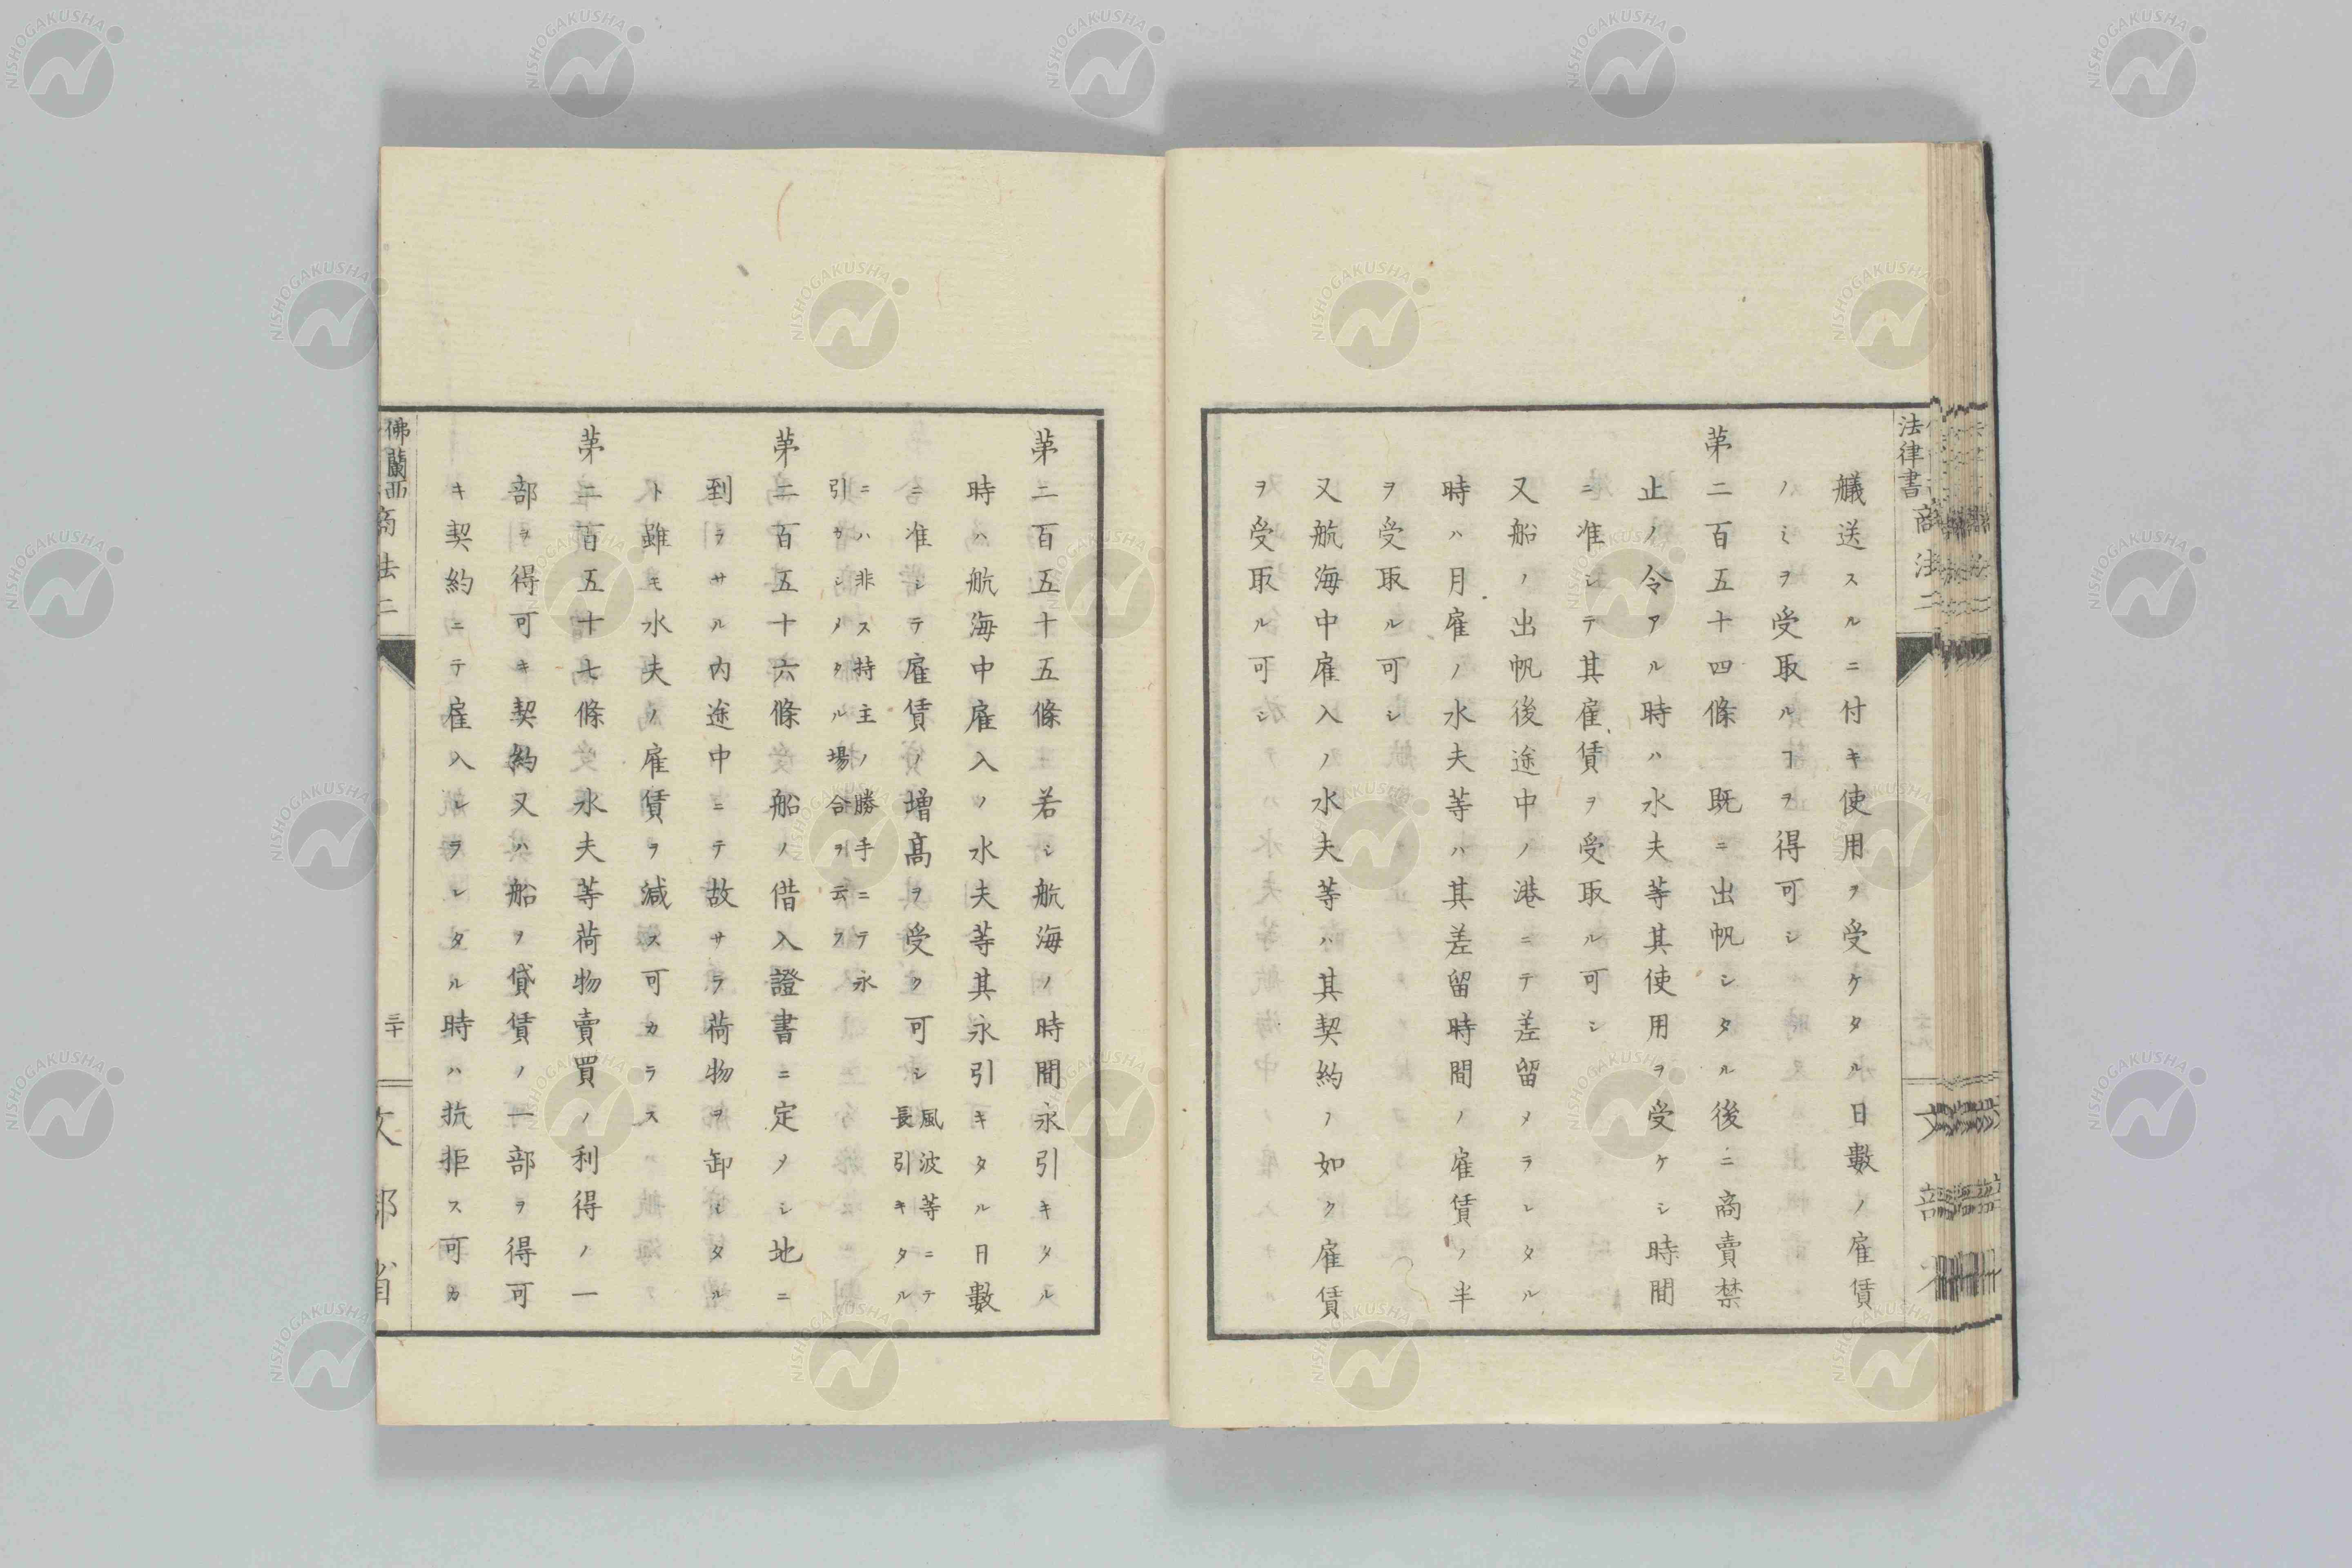 艤送スルニ付キ使用ヲ受ケタル日數ノ雇賃
ノミヲ受取ルヿヲ得可シ
苐二百五十四條 既ニ出帆シタル後ニ商賣禁
止ノ令アル時ハ水夫等其使用ヲ受ケシ時間
ニ准シテ其雇賃ヲ受取ル可シ
又船ノ出帆後途中ノ港ニテ差留メラレタル
時ハ月雇ノ水夫等ハ其差留時間ノ雇賃ノ半
ヲ受取ル可シ
又航海中雇入ノ水夫等ハ其契約ノ如ク雇賃
ヲ受取ル可シ
法律書
商法二
苐二百五十五條 若シ航海ノ時間永引キタル
時ハ航海中雇入ノ水夫等其永引キタル日數
ニ准シテ雇賃ノ増髙ヲ受ク可シ
風波等ニテ
長引キタル
ニハ非ス持主ノ勝手ニテ永
引カシメタル場合ヲ云フ
苐二百五十六條 船ノ借入證書ニ定メシ地ニ
到ラサル内途中ニテ故サラ荷物ヲ卸シタル
ト雖モ水夫ノ雇賃ヲ減ス可カラス
苐二百五十七條 水夫等荷物賣買ノ利得ノ一
部ヲ得可キ契約又ハ船ヲ貸賃ノ一部ヲ得可
キ契約ニテ雇入レラレタル時ハ抗拒ス可カ
佛蘭西
商法二
三十
文部省
NISHOGAKUSHA